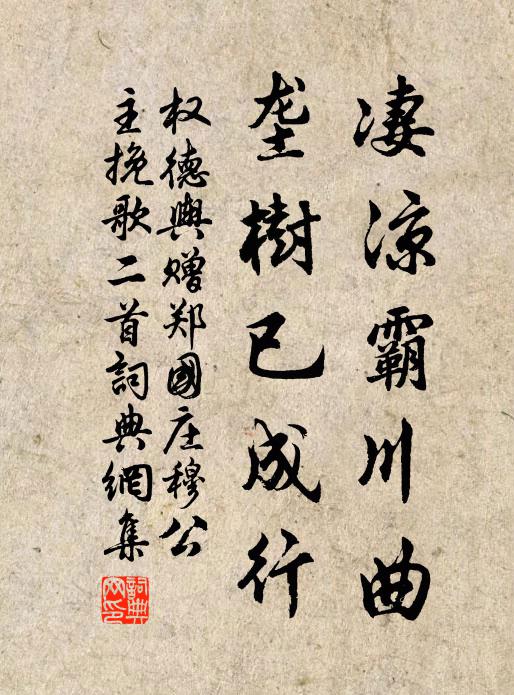 凄凉霸川曲
垄树已成行
权德舆赠郑國庄穆公
主挽歌二首词典網集
詞典網印